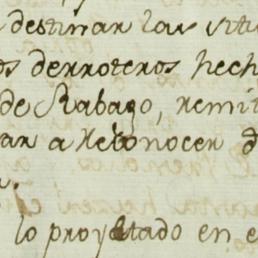 destinar las
os derroteros hech
de Rabago, remit
ar a Reconocer d
lo proyectado en e